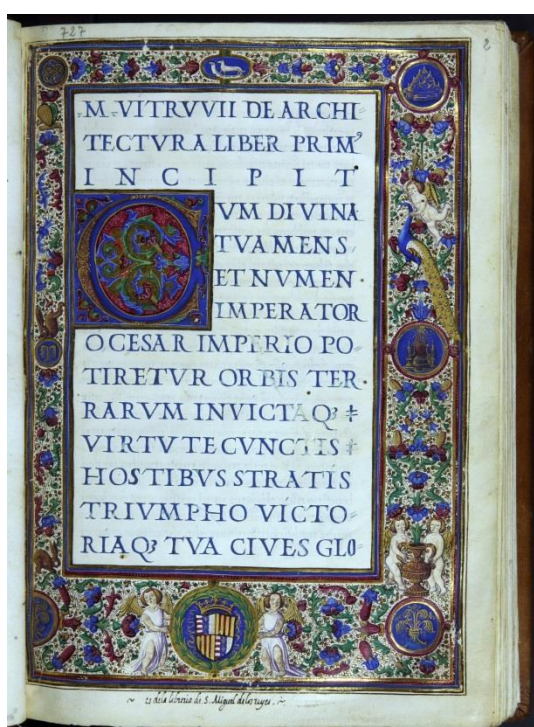 727
2
M. VITRVVII DE ARCHI=
TECTVRA LIBER PRIM⁹
INCIPIT
CVM DIVINA
TVA MENS
ET NVMEN
IMPERATOR
O CESAR IMPERIO PO=
TIRETVR ORBIS TER
RARVM INVICTAQꝫ
VIRTVTE CVNCTIS
HOSTIBVS STRATIS
TRIVMPHO VICTO=
RIAQꝫ TVA CIVES GLO=
~ es dela libreria de S. Miguel delos reyes. ~